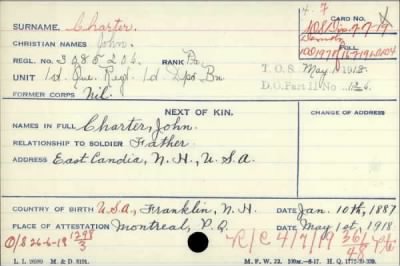 4. 7
SURNAME, Charter. CARD NO.
CHRISTIAN NAMES John.
REGL. NO. 3085206. RANK Pte. ROLL
UNIT 1st. Que. Regt. 1st Dpo Bn T.O.S. May 1 1918.
D.O. Part II No. 126.
FORMER CORPS Nil.
NEXT OF KIN. CHANGE OF ADDRESS
NAMES IN FULL Charter, John.
RELATIONSHIP TO SOLDIER Father
ADDRESS East Candia, N.H., U.S.A.
COUNTRY OF BIRTH U.S.A., Franklin, N.H. DATE Jan. 10th, 1887
PLACE OF ATTESTATION Montreal, P.Q. DATE May 1st, 1918.
O/S 26-6-19 1298/3 R/C 4/7/19 361/48 Pte
M. F. W. 22.